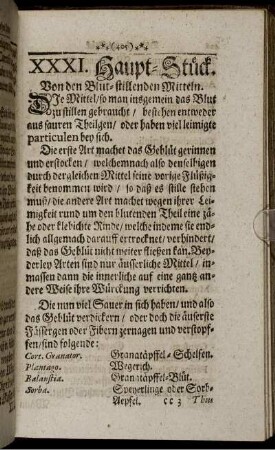 (405)
XXXI. Haupt-Stück.
Von den Blut-stillenden Mitteln.
DIe Mittel/ so man insgemein das Blut
zu stillen gebraucht/ bestehen entweder
aus sauren Theilgen/ oder haben viel leimigte
particulen bey sich.
Die erste Art machet das Geblüt gerinnen
und erstocken/ welchem nach also demselbigen
durch dergleichen Mittel seine vorige Flüßig-
keit benommen wird/ so daß es stille stehen
muß/ die andre Art machet wegen ihrer Lei-
migkeit rund um den blutenden Theil eine zä-
he oder klebichte Rinde/ welche indeme sie end-
lich allgemach darauff ertrocknet/ verhindert/
daß das Geblüt nicht weiter fließen kan. Bey-
derley Arten sind nur äusserliche Mittel/ in-
massen dann die innerliche auf eine gantz an-
dere Weise ihre Würckung verrichten.
Die nun viel Sauer in sich haben/ und also
das Geblüt verdickern/ oder doch die äuserste
Fäsergen oder Fibern zernagen und verstopf-
fen/ sind folgende:
Cort. Granator. Granatäpffel-Schelfen.
Plantago. Wegerich.
Balaustia. Granatäpffel-Blüt.
Sorba. Speyerlinge oder Sorb-
Aepfel. cc 3 Thus